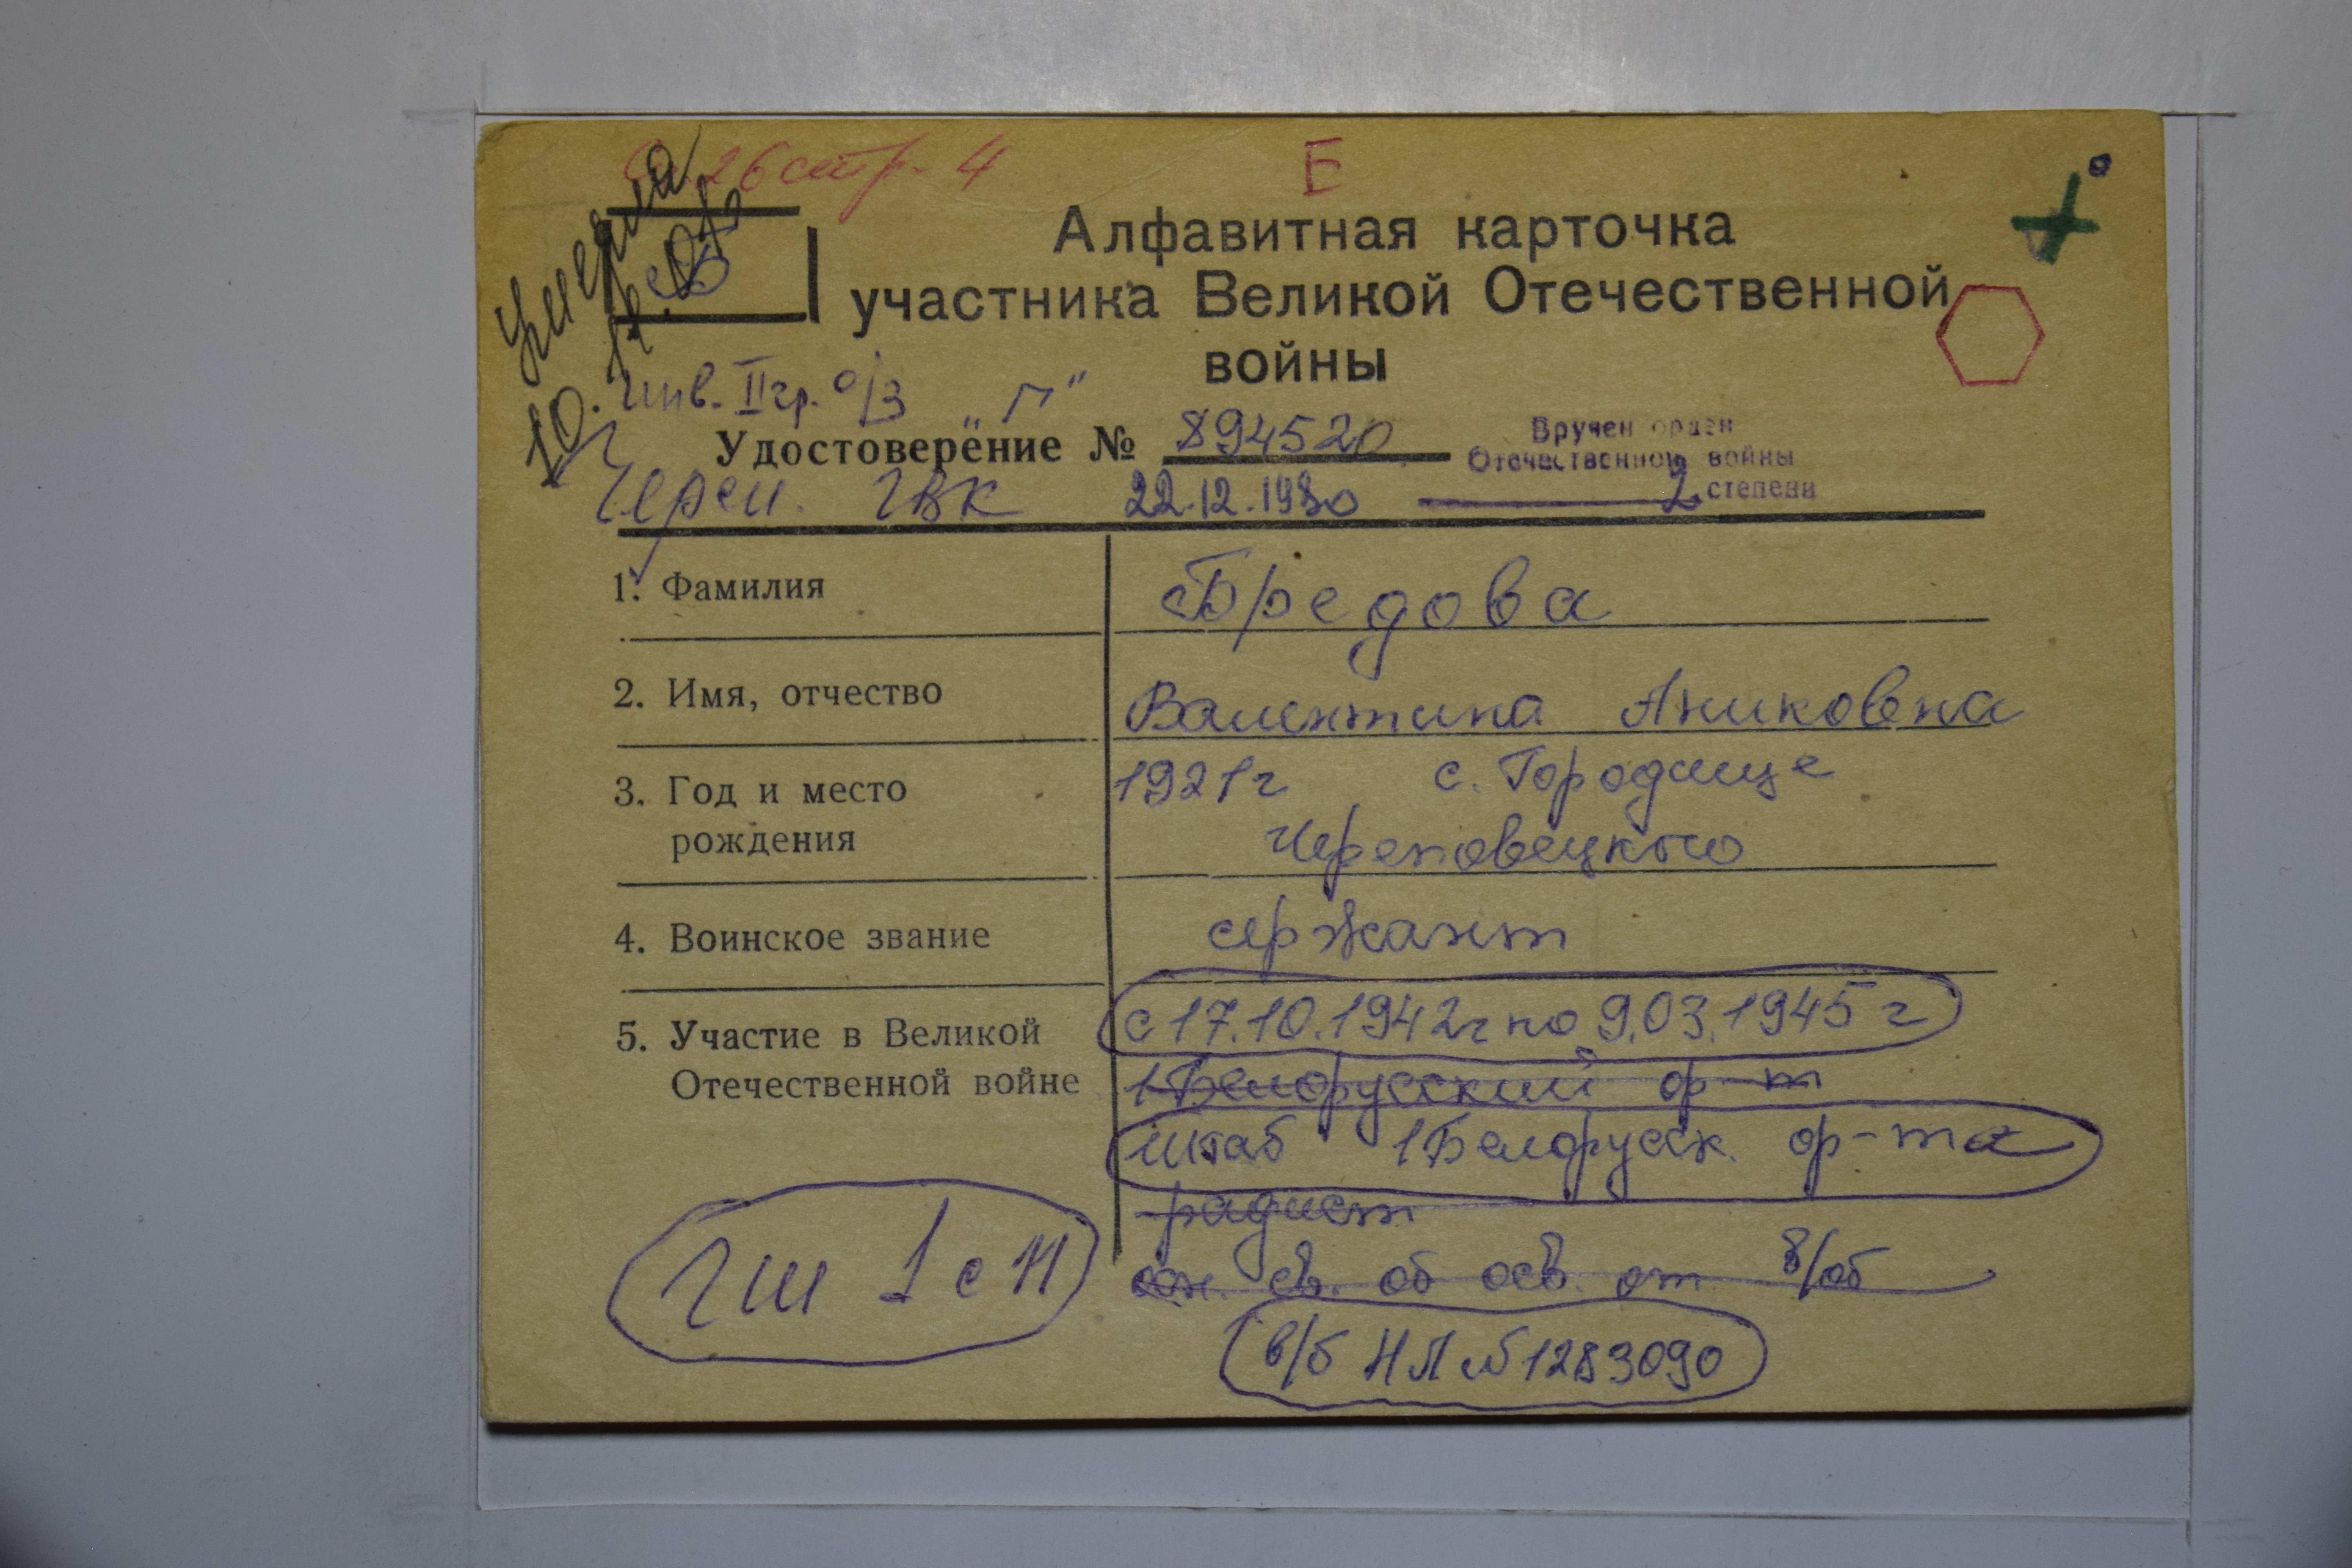 26 стр. 4
Б
Алфавитная карточка
участника Великой Отечественной
войны
умерла
Б
инв. II гр. о/з „Г"
Удостоверение № 894520
Вручен орден
Отечественной войны
2 степени
Череп. ГВК 22.12.1980
1. Фамилия Бредова
2. Имя, отчество Валентина Аниковна
3. Год и место 1921 г с. Городище
рождения Череповецкого
4. Воинское звание сержант
5. Участие в Великой с 17.10.1942 г по 9.03.1945 г
Отечественной войне 1 Белорусский ф-т
штаб 1 Белорусск. ф-та
радист
св. об осв. от в/об
ГШ 1 сп
в/б НЛ № 1283090